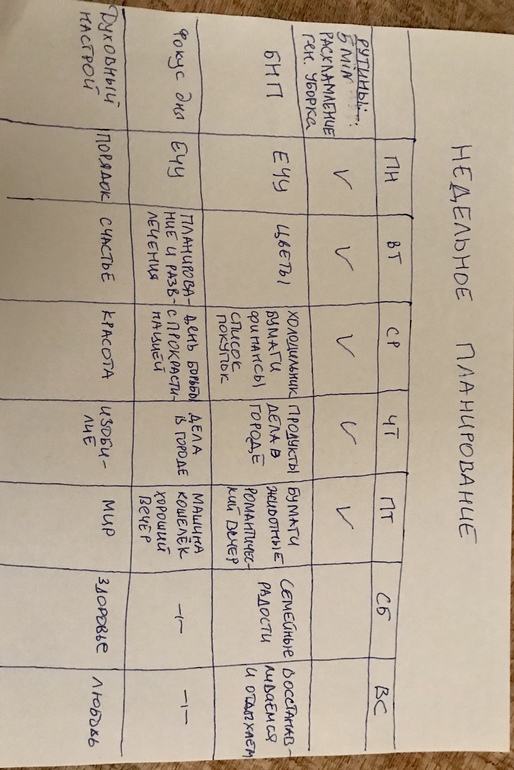 НЕДЕЛЬНОЕ ПЛАНИРОВАНИЕ
ПН ВТ СР ЧТ ПТ СБ ВС
РУТИНЫ:
5 MIN
РАСХЛАМЛЕНИЕ
ГЕН. УБОРКА
✓ ✓ ✓ ✓ ✓
БНП
ЕЧУ
ЦВЕТЫ
ХОЛОДИЛЬНИК
БУМАГИ
ФИНАНСЫ
СПИСОК
ПОКУПОК
ПРОДУКТЫ
ДЕЛА В
ГОРОДЕ
БУМАГИ
ЖИВОТНЫЕ
РОМАНТИЧЕС-
КИЙ ВЕЧЕР
СЕМЕЙНЫЕ
РАДОСТИ
ВОССТАНАВ-
ЛИВАЕМСЯ
И ОТДЫХАЕМ
ФОКУС ДНЯ
ЕЧУ
ПЛАНИРОВА-
НИЕ И РАЗВ-
ЛЕЧЕНИЯ
ДЕНЬ БОРЬБЫ
С ПРОКРАСТИ-
НАЦИЕЙ
ДЕЛА
В ГОРОДЕ
МАШИНА
КОШЕЛЁК
ХОРОШИЙ
ВЕЧЕР
-"-
-"-
ДУХОВНЫЙ
НАСТРОЙ
ПОРЯДОК
СЧАСТЬЕ
КРАСОТА
ИЗОБИ-
ЛИЕ
МИР
ЗДОРОВЬЕ
ЛЮБОВЬ